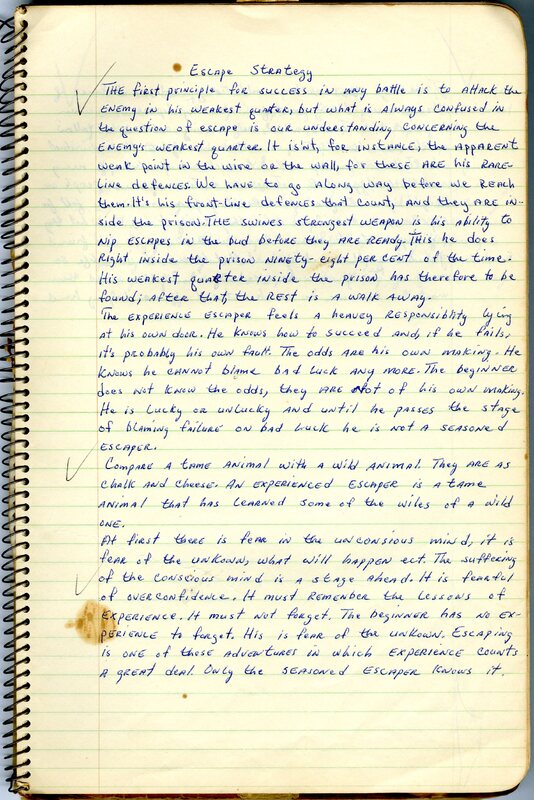 Escape Strategy
THE first principle for success in any battle is to attack the
ENEMY in his weakest quarter, but what is always confused in
the question of escape is our understanding concerning the
ENEMY's weakest quarter. It isn't, for instance, the apparent
weak point in the wire or the wall, for these are his rare-
line defences. We have to go along way before we reach
them. It's his front-line defences that count, and they are in-
side the prison. THE swines strongest weapon is his ability to
nip escapes in the bud before they are ready. This he does
Right inside the prison ninety-eight per cent of the time.
His weakest quarter inside the prison has therefore to be
found; after that, the rest is a walk away.
The experience escaper feels a heavey responsiblity lying
at his own door. He knows how to succeed and, if he fails,
it's probably his own fault. The odds are his own making. He
knows he cannot blame bad luck any more. The beginner
does not know the odds, they are not of his own making.
He is lucky or unlucky and until he passes the stage
of blaming failure on bad luck he is not a seasoned
escaper.
Compare a tame animal with a wild animal. They are as
chalk and cheese. An experienced escaper is a tame
animal that has learned some of the wiles of a wild
one.
At first there is fear in the unconsious mind, it is
fear of the unkown, what will happen ect. The suffering
of the conscious mind is a stage ahead. It is fearful
of overconfidence. It must remember the lessons of
experience. It must not forget. The beginner has no ex-
perience to forget. His is fear of the unkown. Escaping
is one of those adventures in which experience counts
a great deal. Only the seasoned escaper knows it.